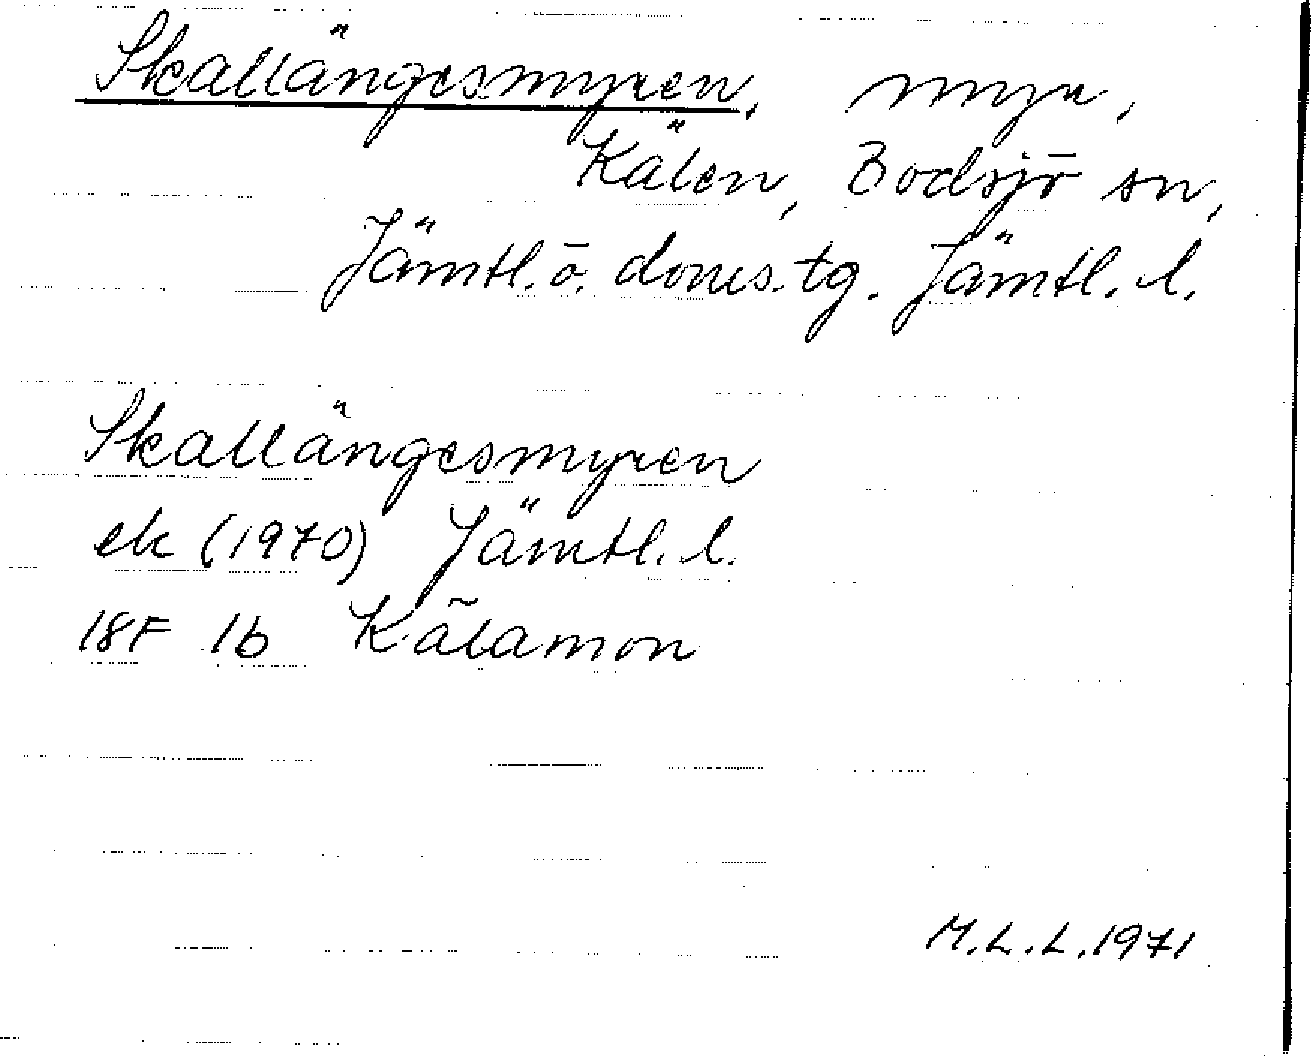 Skallängesmyren, myr,
Kälen, Bodsjö sn,
Jämtl. ö. doms. tg. Jämtl. l.
Skallängesmyren
ek (1970) Jämtl. l.
18F 1b Kälamon
M.L.L. 1971